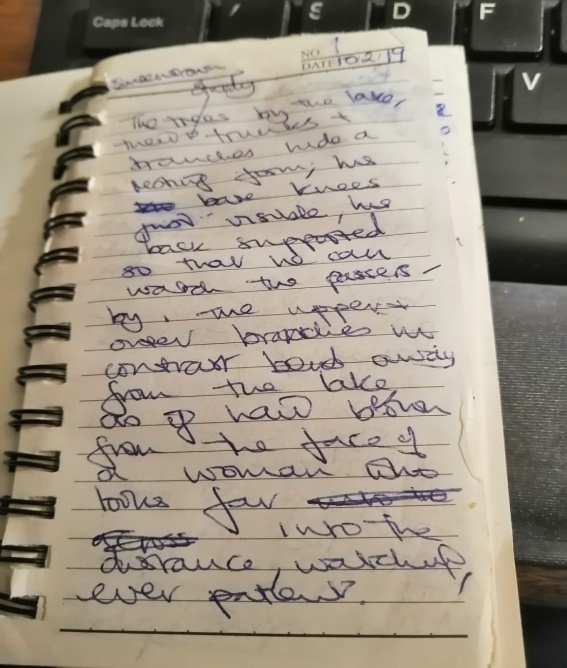 Caps Lock
S
D
F
V
NO 1
DATE 10/2/19
study
The trees by the lake,
their trunks +
branches hide a
resting form, his
bare knees
just visible, his
back supported
so that he can
watch the passers-
by. The upper +
outer branches in
contrast bend away
from the lake
as if hair blown
from the face of
a woman who
looks far
into the
distance, watchful,
ever patient.